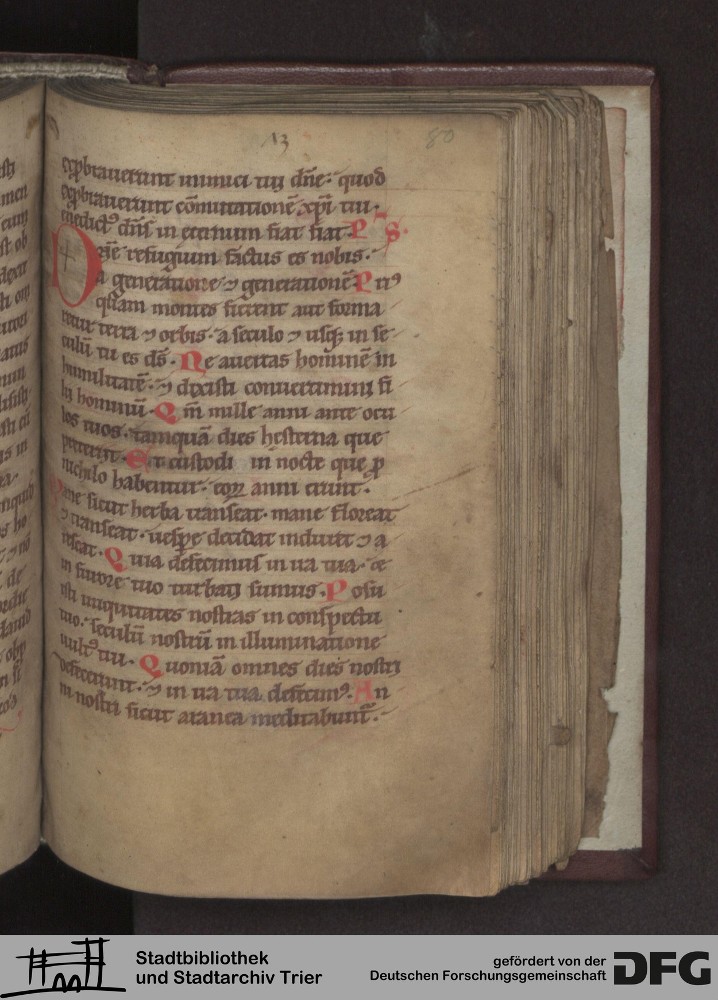 13
80
exprobrauerunt inimici tui dn̄e· quod
exprobrauerunt cōmutationē xp̄i tui·
enedict9 dn̄s in eternum fiat fiat P S.
Dn̄e refugium factus es nobis·
a generatione ⁊ generationē P ri9
quam montes fierent aut forma
retur terra ⁊ orbis· a seculo ⁊ usq; in se
culū tu es ds̄· Ne auertas hominē in
humilitatē· ⁊ dixisti conuertimini fi
lij hominū· Qm̄ mille anni ante ocu
los tuos· tamquā dies hesterna que
preteriit· Et custodia in nocte que p
nichilo habentur· eoꝝ anni erunt·
Mane sicut herba transeat· mane floreat
⁊ transeat· uespe decidat induret ⁊ a
rescat· Quia defecimus in ira tua· ⁊
in furore tuo turbati sumus· Posu
isti iniquitates nostras in conspectu
tuo· seculū nostrū in illuminatione
uult9 tui· Quoniā omnes dies nostri
defecerunt· ⁊ in ira tua defecim9· An
ni nostri sicut aranea meditabunt̄·
Stadtbibliothek
und Stadtarchiv Trier
gefördert von der
Deutschen Forschungsgemeinschaft DFG